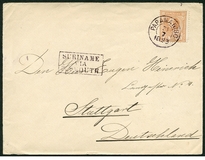 PARAMARIBO
7
SURINAME
VIA
PLYMOUTH
Den Herrn Eugen Heinrich
Stuttgart
Deutschland